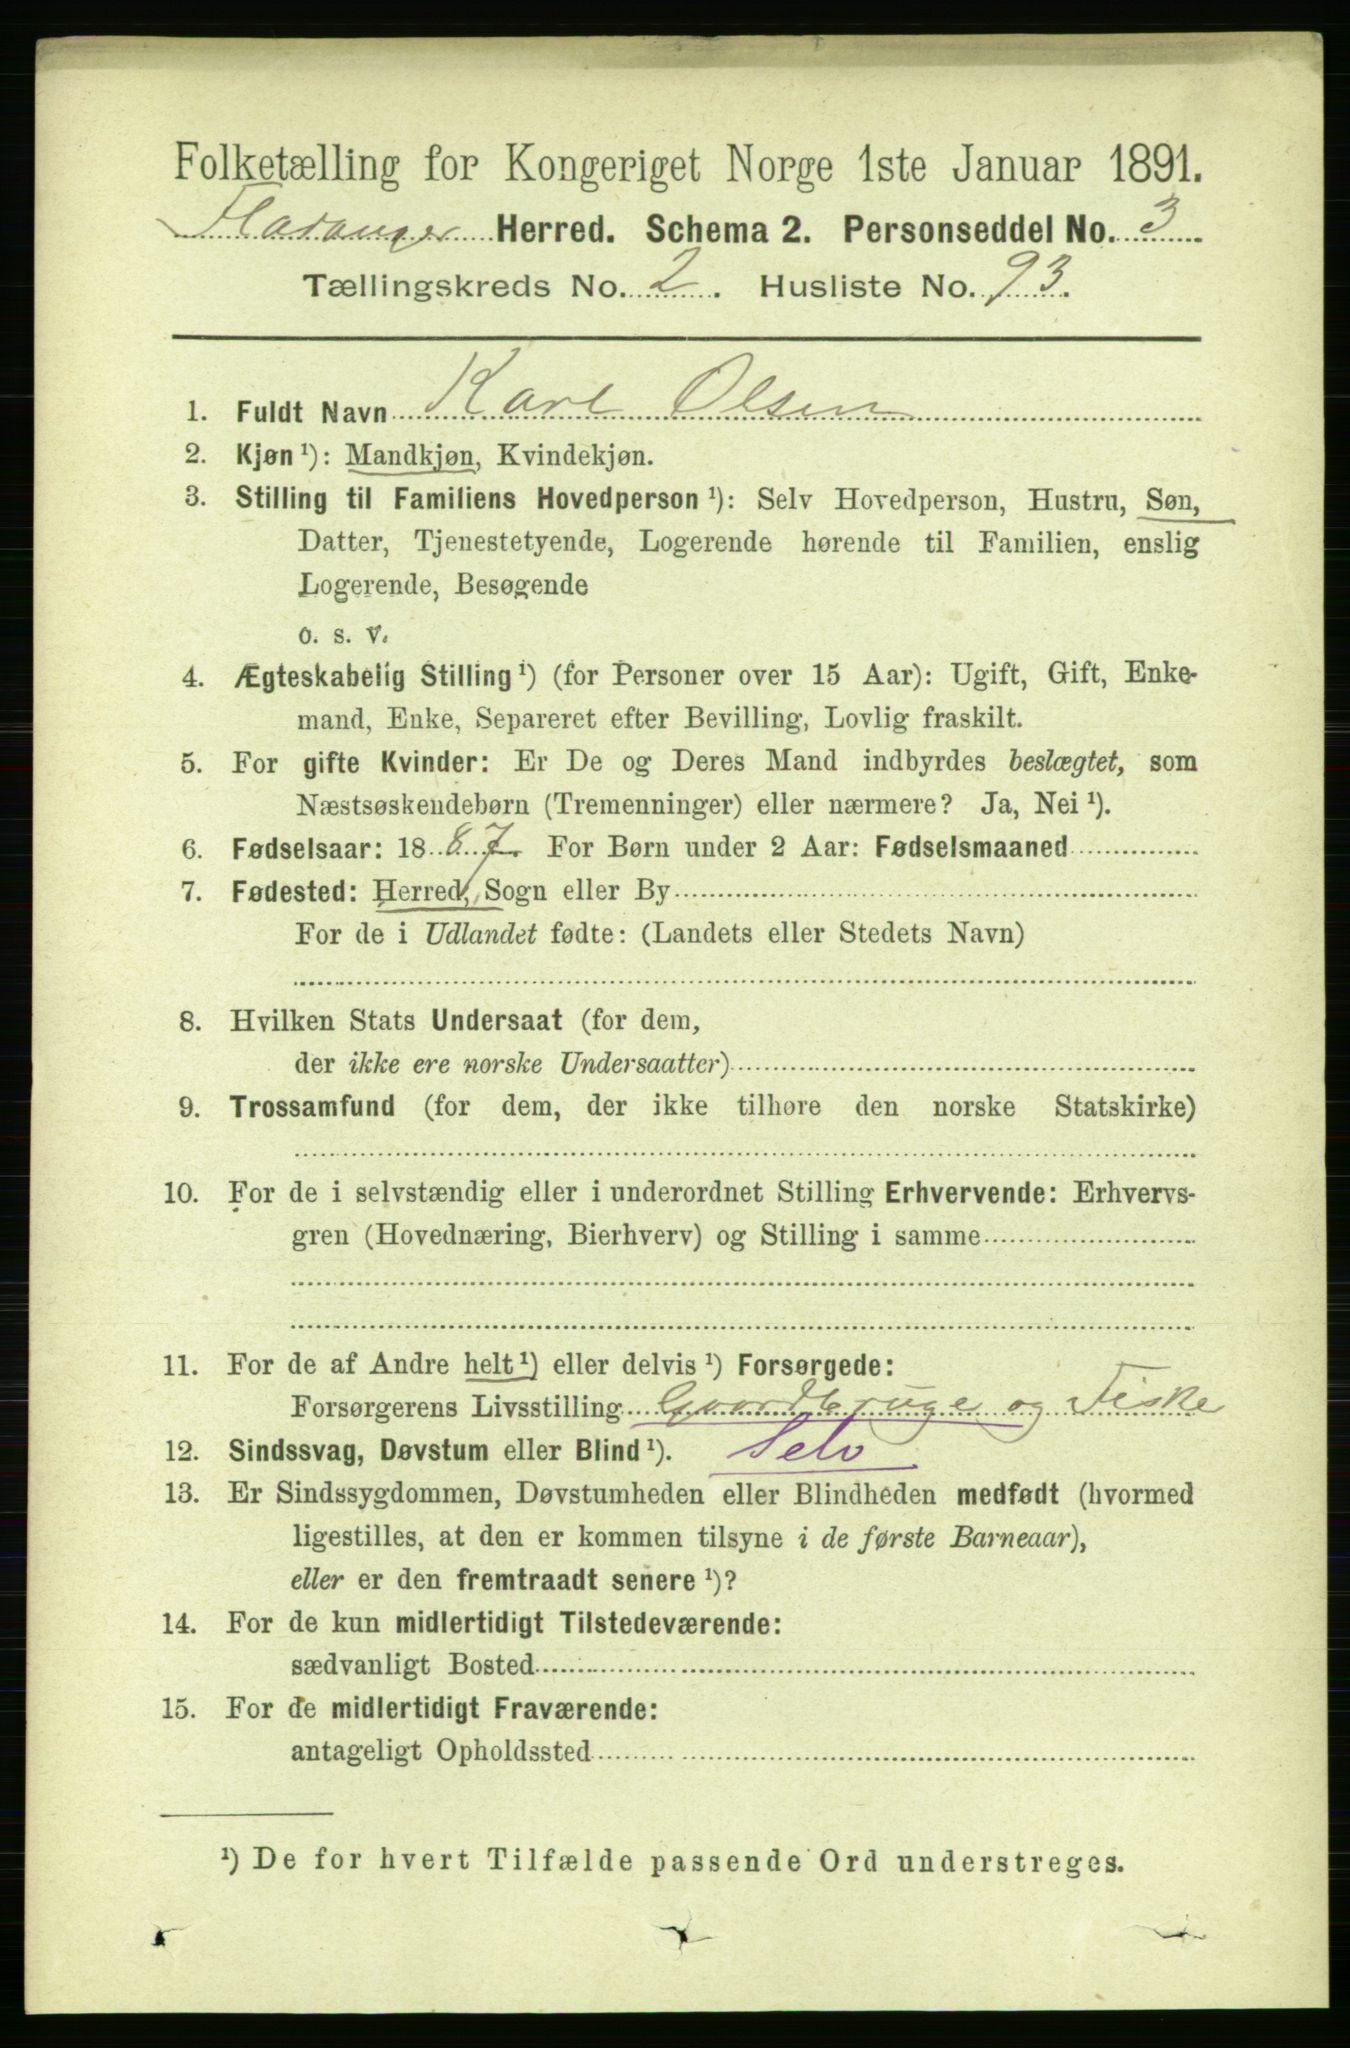 Folketælling for Kongeriget Norge 1ste Januar 1891.
Flatanger Herred. Schema 2. Personseddel No. 3
Tællingskreds No. 2. Husliste No. 93.
1. Fuldt Navn Karl Olsen
2. Kjøn ¹): Mandkjøn, Kvindekjøn.
3. Stilling til Familiens Hovedperson ¹): Selv Hovedperson, Hustru, Søn,
Datter, Tjenestetyende, Logerende hørende til Familien, enslig
Logerende, Besøgende
o. s. v.
4. Ægteskabelig Stilling ¹) (for Personer over 15 Aar): Ugift, Gift, Enke-
mand, Enke, Separeret efter Bevilling, Lovlig fraskilt.
5. For gifte Kvinder: Er De og Deres Mand indbyrdes beslægtet, som
Næstsøskendebørn (Tremenninger) eller nærmere? Ja, Nei ¹).
6. Fødselsaar: 1887. For Børn under 2 Aar: Fødselsmaaned
7. Fødested: Herred, Sogn eller By
For de i Udlandet fødte: (Landets eller Stedets Navn)
8. Hvilken Stats Undersaat (for dem,
der ikke ere norske Undersaatter)
9. Trossamfund (for dem, der ikke tilhøre den norske Statskirke)
10. For de i selvstændig eller i underordnet Stilling Erhvervende: Erhvervs-
gren (Hovednæring, Bierhverv) og Stilling i samme
11. For de af Andre helt ¹) eller delvis ¹) Forsørgede:
Forsørgerens Livsstilling Gaardbruge og Fiske
12. Sindssvag, Døvstum eller Blind ¹). Selv
13. Er Sindssygdommen, Døvstumheden eller Blindheden medfødt (hvormed
ligestilles, at den er kommen tilsyne i de første Barneaar),
eller er den fremtraadt senere ¹)?
14. For de kun midlertidigt Tilstedeværende:
sædvanligt Bosted
15. For de midlertidigt Fraværende:
antageligt Opholdssted
¹) De for hvert Tilfælde passende Ord understreges.